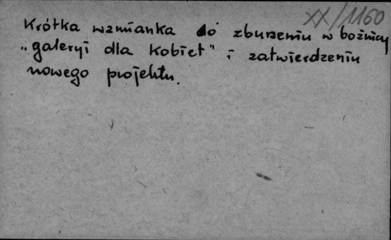 XX/1160
Krótka wzmianka o zburzeniu w bożnicy
„galeryi dla kobiet" i zatwierdzeniu
nowego projektu.